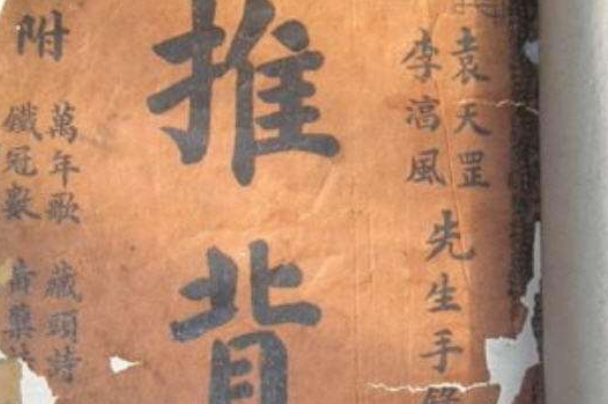 袁天罡
李淳風
先生手
推背
附
萬年歌 藏頭詩
鐵冠數